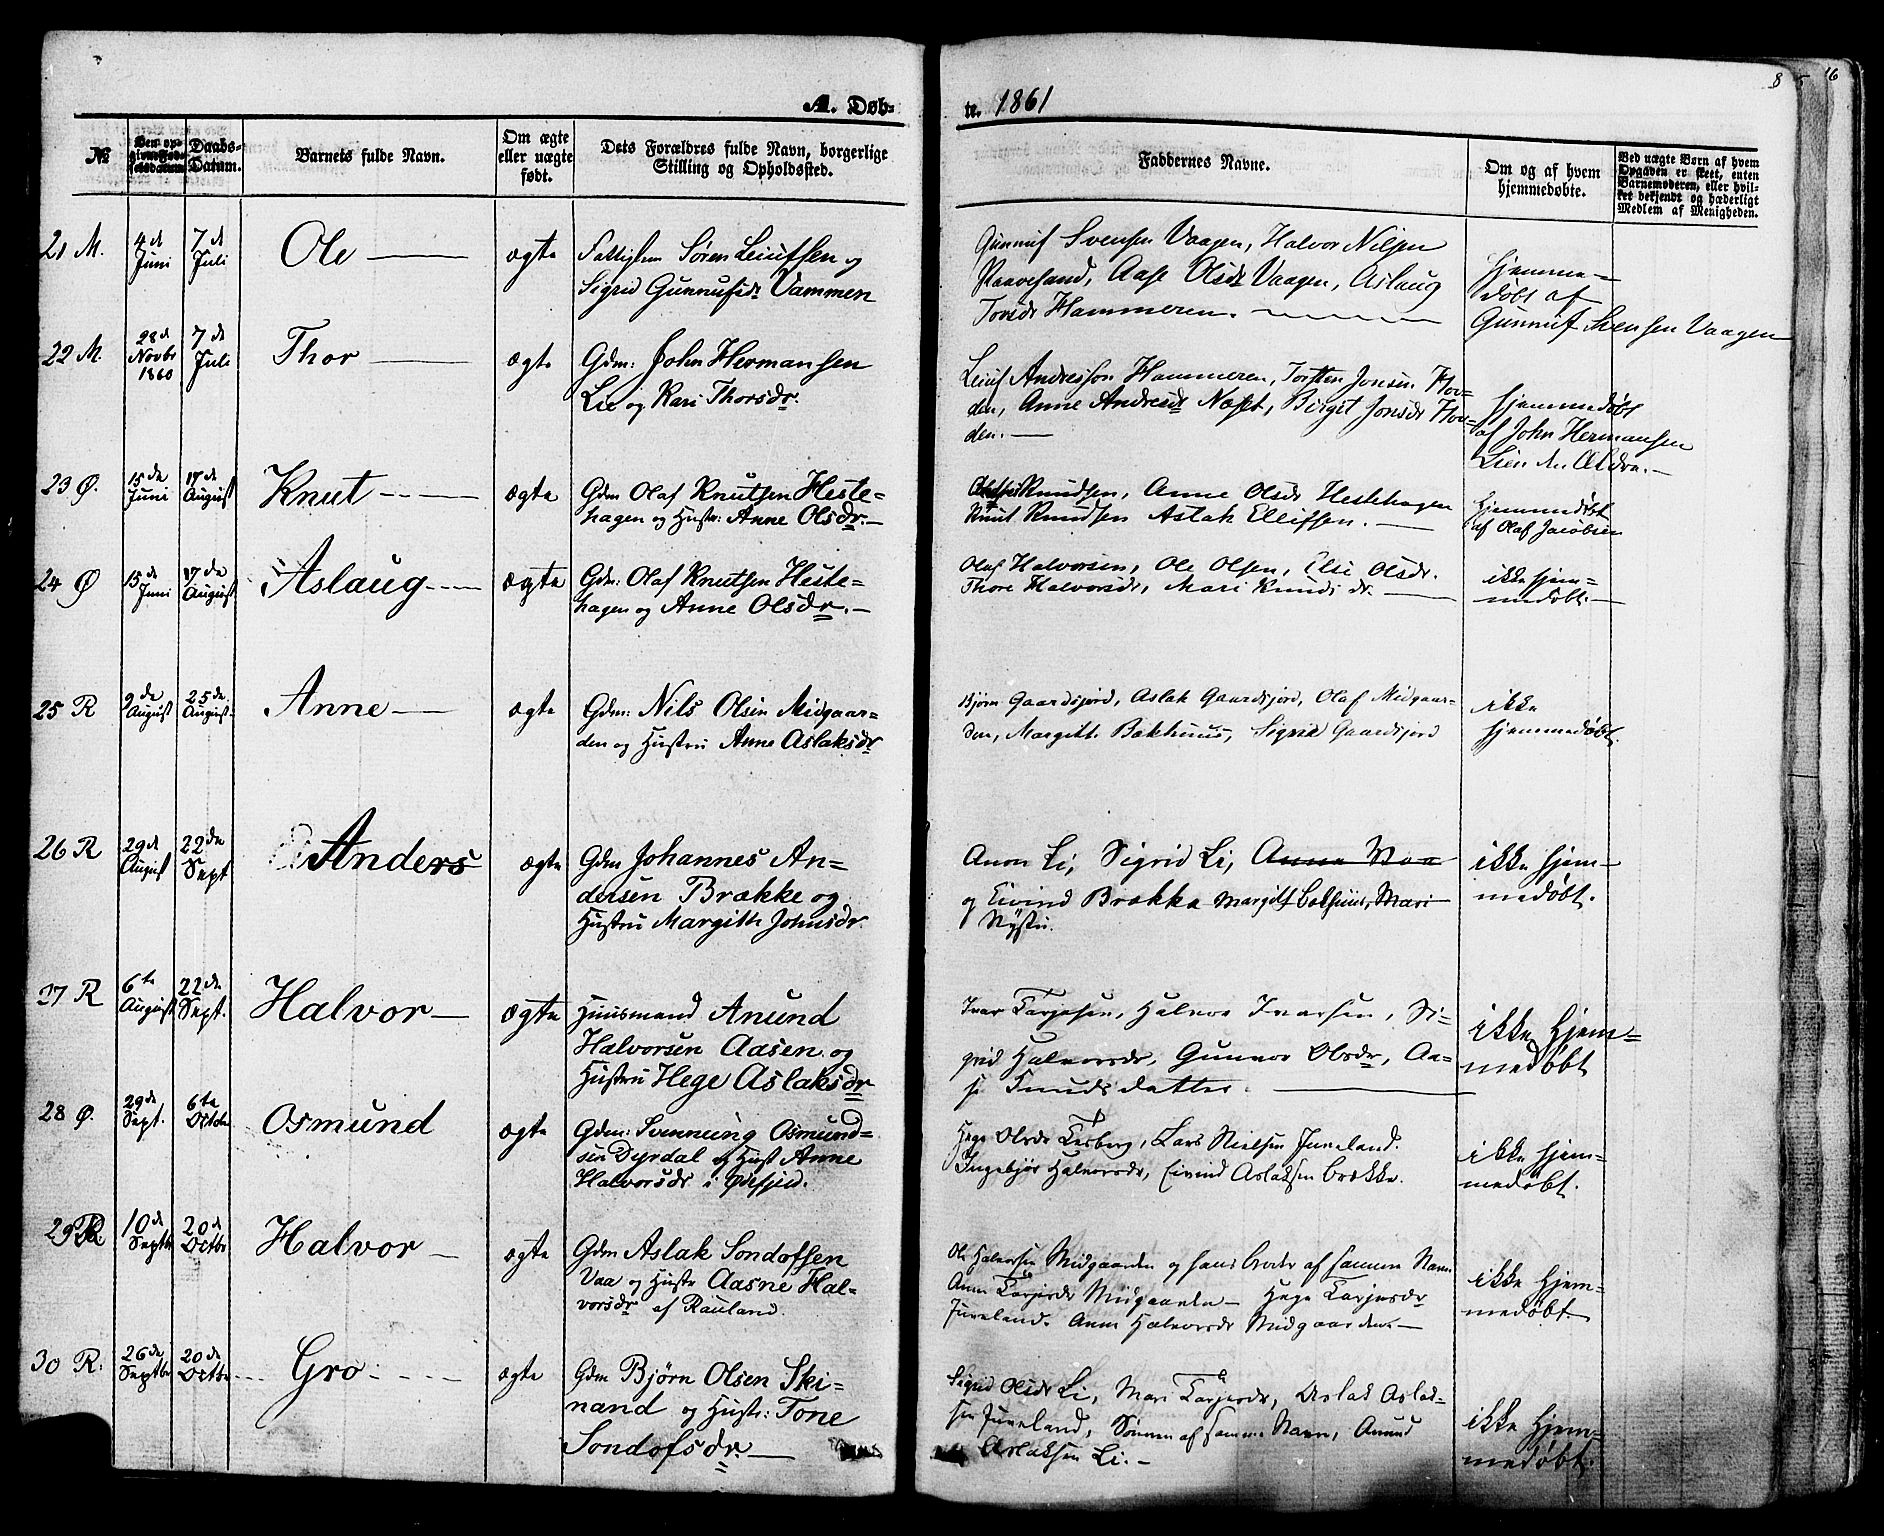 A. Døb-
te. 1861
8 5 16
№
Den op-
givne Fød-
selsdatum.
Daabs-
Datum.
Barnets fulde Navn.
Om ægte
eller uægte
født.
Dets Forældres fulde Navn, borgerlige
Stilling og Opholdssted.
Faddernes Navne.
Om og af hvem
hjemmedøbte.
Ved uægte Børn af hvem
Opgaven er skeet, enten
Barnemoderen, eller hvil-
ket bekjendt og hæderligt
Medlem af Menigheden.
21 M.
4de
Juni
7de
Juli
Ole
ægte
Søren Leiufsen og
Sigrid Gunnufsdr Vammen
Gunnuf Svensen Vaagen, Halvor Nilsen
Raavesand, Aase Olsdr Vaagen, Aslaug
Tovsdr Hammeren.
hjemme-
døbt af
Gunnuf Svensen Vaagen
22 M.
28de
Novbr
1860
7de
Juli
Thor
ægte
Gdm: John Hermansen
Lie og Kari Thorsdr.
Leiuf Andresson Hammeren, Torsten Jonsen Hov-
den, Anne Andresdr Næset, Birgit Jonsdr Hov-
den.
hjemmedøbt
af John Hermansen
Lien
23 Ø.
15de
Juni
17de
August
Knut
ægte
Gdm Olaf Knutsen Heste-
hagen og Hustr: Anne Olsdr.
Knudsen, Anne Olsdr Hestehagen
Knut Knudsen Aslak Ellefsen.
hjemmedøbt
af Olaf Jacobsen
24 Ø
15de
Juni
17de
August
Aslaug
ægte
Gdm: Olaf Knutsen Heste-
hagen og Anne Olsdr.
Olaf Halvorsen, Ole Olsen, Else Olsdr.
Thore Halvorsdr, Mari Knudsdr.
ikke hjem-
medøbt.
25 R
2de
August
25de
August
Anne
ægte
Gdm: Nils Olsen Midgaar-
den og Hustru Anne Aslaksdr
Bjørn Gaardsjord, Aslak Gaardsjord, Olaf Midgaar-
den, Margitt Bakhuus, Sigrid Gaardsjord
ikke
hjemmedøbt.
26 R
29de
August
22de
Sept
Anders
ægte
Gdm Johannes An-
dersen Brække og
Hustru Margith Johnsdr.
Anon Li, Sigrid Li, Anne Vaa
og Eivind Brække Margitt Bakhuus, Mari
Nystu.
ikke hjem-
medøbt.
27 R
6te
August
22de
Sept.
Halvor
ægte
Huusmand Anund
Halvorsen Aasen og
Hustru Hege Aslaksdr
Ivar Tarjesen, Halvor Ivarsen, Si-
grid Halvorsdr, Gunvor Olsdr, Aa-
se Knudsdatter.
ikke hjem-
medøbt
28 Ø.
29de
Sept.
6te
Octbr
Osmund
ægte
Gdm: Svennung Osmund-
sen Dyrdal og Hust Anne
Halvorsdr i Øifsjed.
Hege Olsdr Lars Nielsen Juveland.
Ingebjør Halvorsdr, Eivind Aslaksen Brække.
ikke hjem-
medøbt.
29 R
10de
Septbr
20de
Octbr
Halvor
ægte
Gdm Aslak Sondofsen
Vaa og Hustr Aasne Hal-
vorsdr af Rauland.
Ole Halvorsen Midgaarden og hans Broder af samme Navn
Anne Tarjesdr Midgaarden Hege Tarjesdr
Juveland. Anne Halvorsdr Midgaarden.
ikke hjem-
medøbt
30 R.
26de
Septbr
20de
Octbr
Gro
ægte
Gdm Bjørn Olsen Ski-
nand og Hustr: Tone
Sondofsdr.
Sigrid Olsdr Li, Mari Tarjesdr, Aslak Aslak-
sen Juveland, Sønnen af samme Navn, Anund
Aslaksen Li.
ikke hjem-
medøbt.